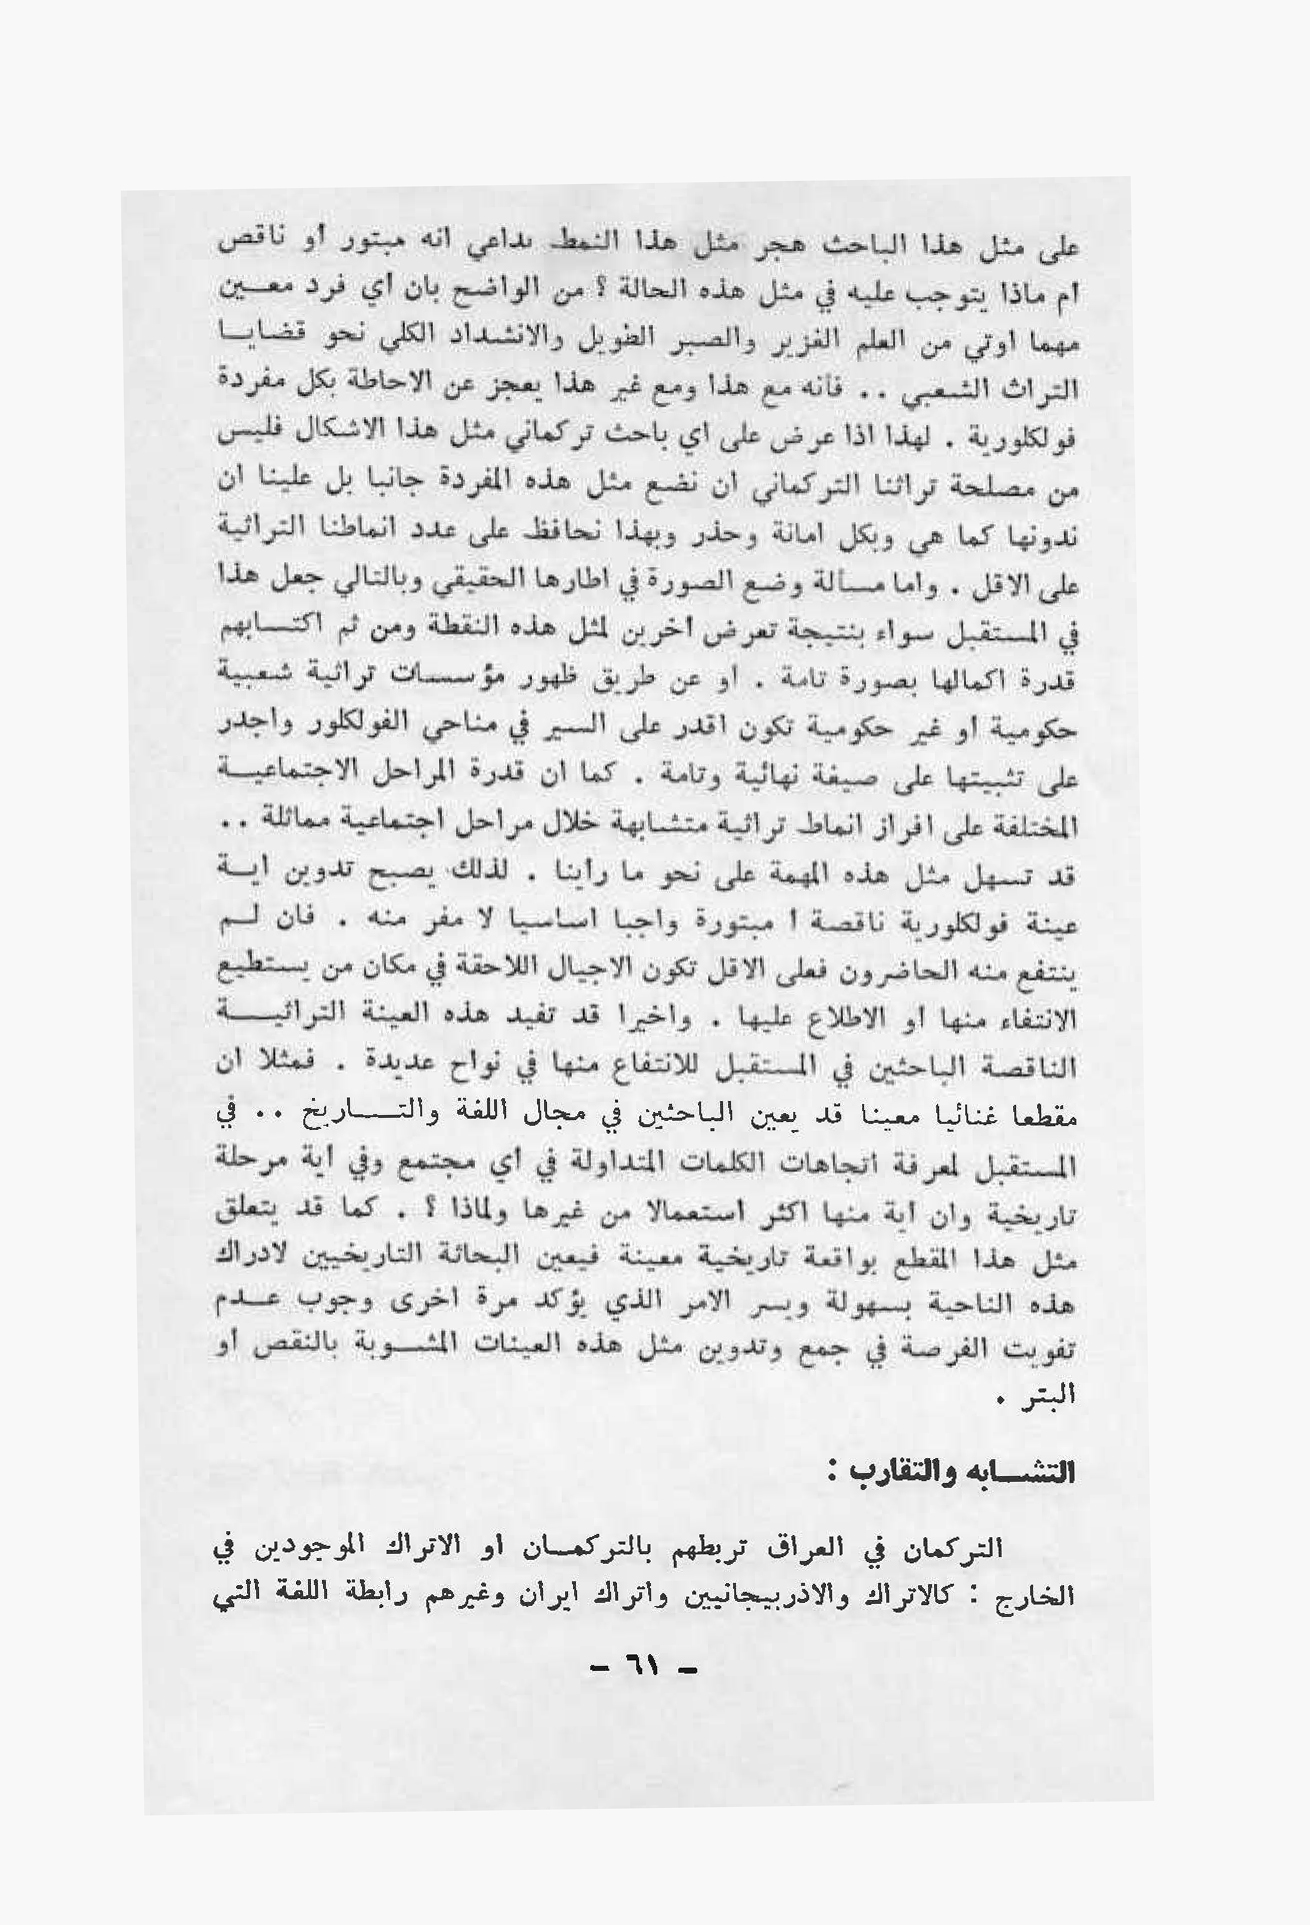 على مثل هذا الباحث هجر مثل هذا النمط بداعي انه مبتور او ناقص
ام ماذا يتوجب عليه في مثل هذه الحالة ؟ من الواضح بان اي فرد معين
مهما اوتي من العلم الغزير والصبر الطويل والانشداد الكلي نحو قضايا
التراث الشعبي .. فأنه مع هذا ومع غير هذا يعجز عن الاحاطة بكل مفردة
فولكلورية . لهذا اذا عرض على اي باحث تركماني مثل هذا الاشكال فليس
من مصلحة تراثنا التركماني ان نضع مثل هذه المفردة جانبا بل علينا ان
ندونها كما هي وبكل امانة وحذر وبهذا نحافظ على عدد انماطنا التراثية
على الاقل . واما مسألة وضع الصورة في اطارها الحقيقي وبالتالي جعل هذا
في المستقبل سواء بنتيجة تعرض آخرين لمثل هذه النقطة ومن ثم اكتسابهم
قدرة اكمالها بصورة تامة . او عن طريق ظهور مؤسسات تراثية شعبية
حكومية او غير حكومية تكون اقدر على السير في مناحي الفولكلور واجدر
على تثبيتها على صيغة نهائية وتامة . كما ان قدرة المراحل الاجتماعية
المختلفة على افراز انماط تراثية متشابهة خلال مراحل اجتماعية مماثلة ..
قد تسهل مثل هذه المهمة على نحو ما رأينا . لذلك يصبح تدوين اية
عينة فولكلورية ناقصة ا مبتورة واجبا اساسيا لا مفر منه . فان لم
ينتفع منه الحاضرون فعلى الاقل تكون الاجيال اللاحقة في مكان من يستطيع
الانتفاء منها او الاطلاع عليها . واخيرا قد تفيد هذه العينة التراثية
الناقصة الباحثين في المستقبل للانتفاع منها في نواح عديدة . فمثلا ان
مقطعا غنائيا معينا قد يعين الباحثين في مجال اللغة والتاريخ .. في
المستقبل لمعرفة اتجاهات الكلمات المتداولة في اي مجتمع وفي اية مرحلة
تاريخية وان اية منها اكثر استعمالا من غيرها ولماذا ؟ . كما قد يتعلق
مثل هذا المقطع بواقعة تاريخية معينة فيعين البحاثة التاريخيين لادراك
هذه الناحية بسهولة ويسر الامر الذي يؤكد مرة اخرى وجوب عدم
تفويت الفرصة في جمع وتدوين مثل هذه العينات المشوبة بالنقص او
البتر .
التشابه والتقارب :
التركمان في العراق تربطهم بالتركمان او الاتراك الموجودين في
الخارج : كالاتراك والاذربيجانيين واتراك ايران وغيرهم رابطة اللغة التي
- ٦١ -